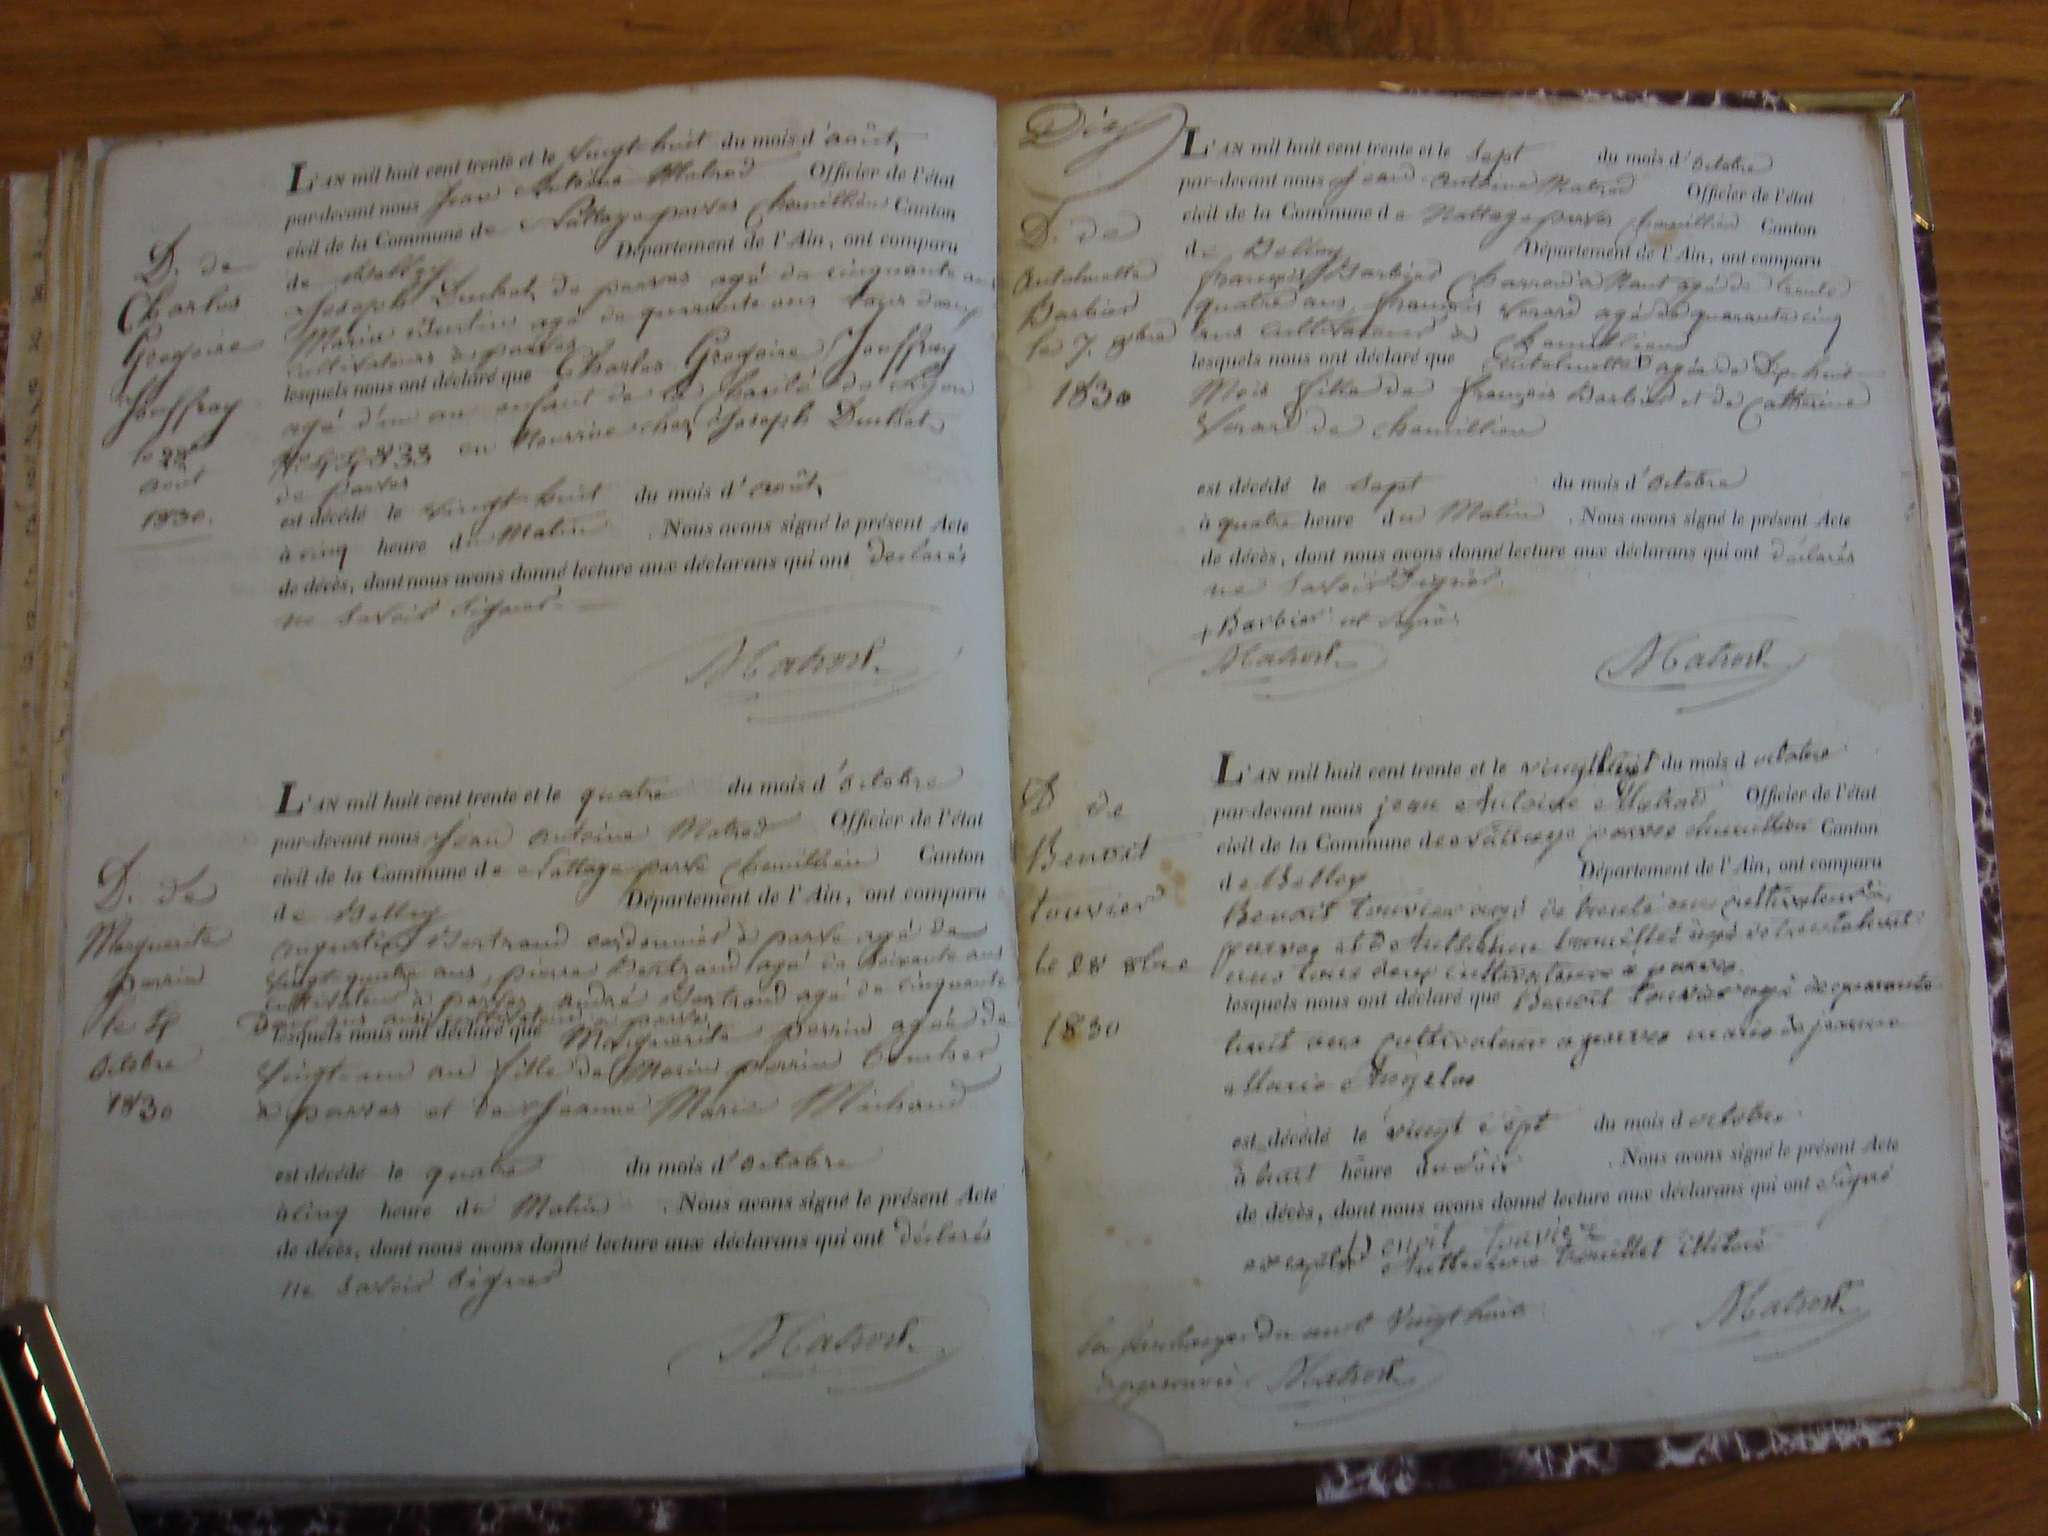 D. de
Charles
Gregoire
Jouffray
le 28
août
1830.
L'AN mil huit cent trente et le vingt huit du mois d'août
par-devant nous Jean Antoine Matrod Officier de l'état
civil de la Commune de Nattage parves Chemillieu Canton
de Belley Département de l'Ain, ont comparu
Joseph de parves agé de cinquante ans
Marin agé de quarante ans tous deux
cultivateurs à parves
lesquels nous ont déclaré que Charles Gregoire Jouffray
agé d'un an enfant de la Charité de Lyon
en Nourrice chez Joseph
de parves
est décédé le vingt huit du mois d'août
à cinq heure du Matin . Nous avons signé le présent Acte
de décès, dont nous avons donné lecture aux déclarans qui ont déclarés
ne savoir signer
Matrod
D. de
Marguerite
perrin
le 4
Octobre
1830
L'AN mil huit cent trente et le quatre du mois d'Octobre
par-devant nous Jean Antoine Matrod Officier de l'état
civil de la Commune de Nattage parve Chemillieu Canton
de Belley Département de l'Ain, ont comparu
Augustin Bertrand cordonnier à parve agé de
vingt quatre ans, pierre Bertrand agé de soixante ans
cultivateur à parves, andré Bertrand agé de cinquante
ans cultivateur à parve
lesquels nous ont déclaré que Marguerite perrin agée de
vingt-un an fille de Marin perrin
à parves et de Jeanne Marie Michaud
est décédé le quatre du mois d'Octobre
à cinq heure du Matin . Nous avons signé le présent Acte
de décès, dont nous avons donné lecture aux déclarans qui ont déclarés
ne savoir signer
Matrod
Dix
D. de
Antoinette
Barbier
le 7. 8bre
1830
L'AN mil huit cent trente et le sept du mois d'Octobre
par-devant nous Jean Antoine Matrod Officier de l'état
civil de la Commune de Nattage parves Chemillieu Canton
de Belley Département de l'Ain, ont comparu
françois Barbier Charron à Nant agé de trente
quatre ans, françois Verard agé de quarante cinq
ans cultivateur de Chemillieu
lesquels nous ont déclaré que Antoinette agée de Dix huit
Mois fille de françois Barbier et de Catherine
Verard de Chemillieu
est décédé le sept du mois d'Octobre
à quatre heure du Matin . Nous avons signé le présent Acte
de décès, dont nous avons donné lecture aux déclarans qui ont déclarés
ne savoir signer
+ Barbier et signé
Matrod
Matrod
D de
Benoit
touvier
le 28 8bre
1830
L'AN mil huit cent trente et le vingt huit du mois d octobre
par-devant nous jean Antoine Matrod Officier de l'état
civil de la Commune de Nattage parves chemillieu Canton
de Belley Département de l'Ain, ont comparu
Benoit touvier agé de trente ans cultivateur à
parves et de Anthelme trouillet agé de trente huit
ans tous deux cultivateurs a parves
lesquels nous ont déclaré que Benoit touvier agé de quarante
huit ans cultivateur a parves marie de jeanne
Marie
est décédé le vingt sept du mois d octobre
à huit heure du soir . Nous avons signé le présent Acte
de décès, dont nous avons donné lecture aux déclarans qui ont signé
Benoit touvier
excepté Anthelme trouillet illiteré
Matrod
vingt huit
approuvé Matrod